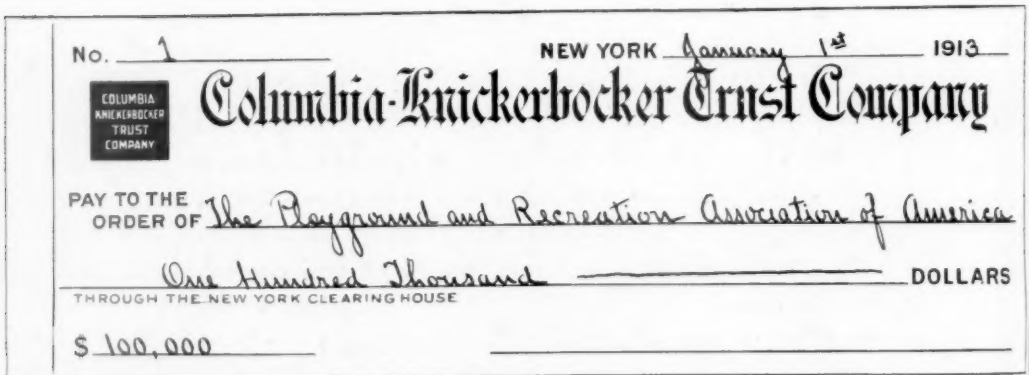 No. 1 NEW YORK January 1st 1913
COLUMBIA
KNICKERBOCKER
TRUST
COMPANY
Columbia-Knickerbocker Trust Company
PAY TO THE
ORDER OF The Playground and Recreation Association of America
One Hundred Thousand DOLLARS
THROUGH THE NEW YORK CLEARING HOUSE
$ 100,000